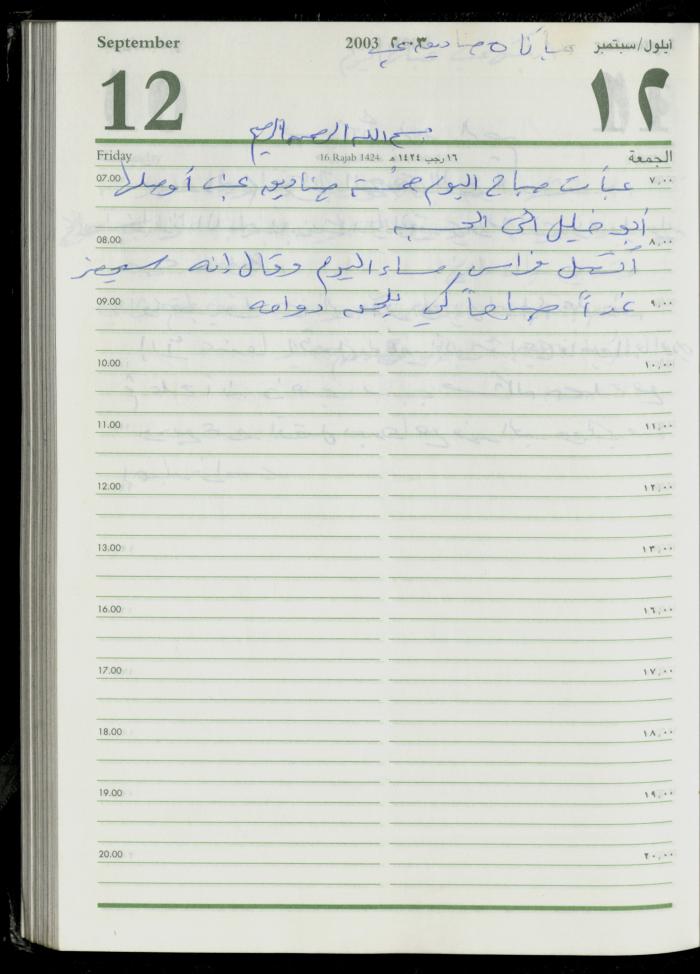 September 2003 ٢٠٠٣ عبأنا ٥ صناديق عنب ايلول/سبتمبر
12 ١٢
بسم الله الرحمن الرحيم
Friday 16 Rajab 1424 ١٦ رجب ١٤٢٤ هـ الجمعة
07.00 عبأت صباح اليوم خمسة صناديق عنب أوصلها ٧,٠٠
أبو خليل الى الحسبه
08.00 ٨,٠٠
أتصل فراس مساء اليوم وقال إنه سيحضر
09.00 غداً صباحاً كي يلحق دوامه ٩,٠٠
10.00 ١٠,٠٠
11.00 ١١,٠٠
12.00 ١٢,٠٠
13.00 ١٣,٠٠
16.00 ١٦,٠٠
17.00 ١٧,٠٠
18.00 ١٨,٠٠
19.00 ١٩,٠٠
20.00 ٢٠,٠٠